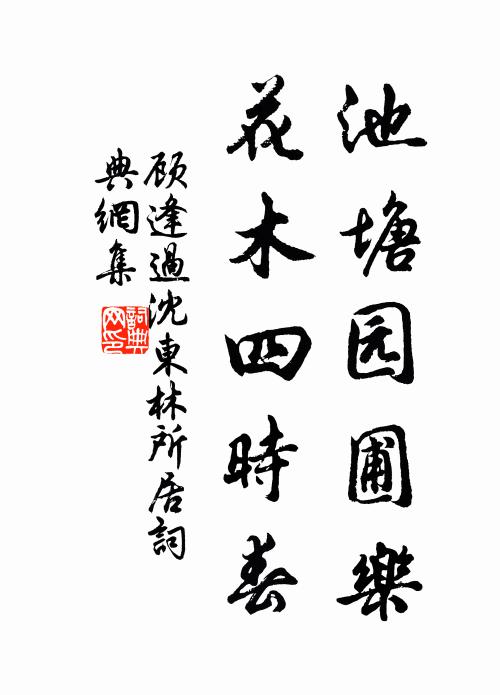 池塘园圃樂
花木四時春
顾逢過沈東林所居詞
典網集
詞典网印